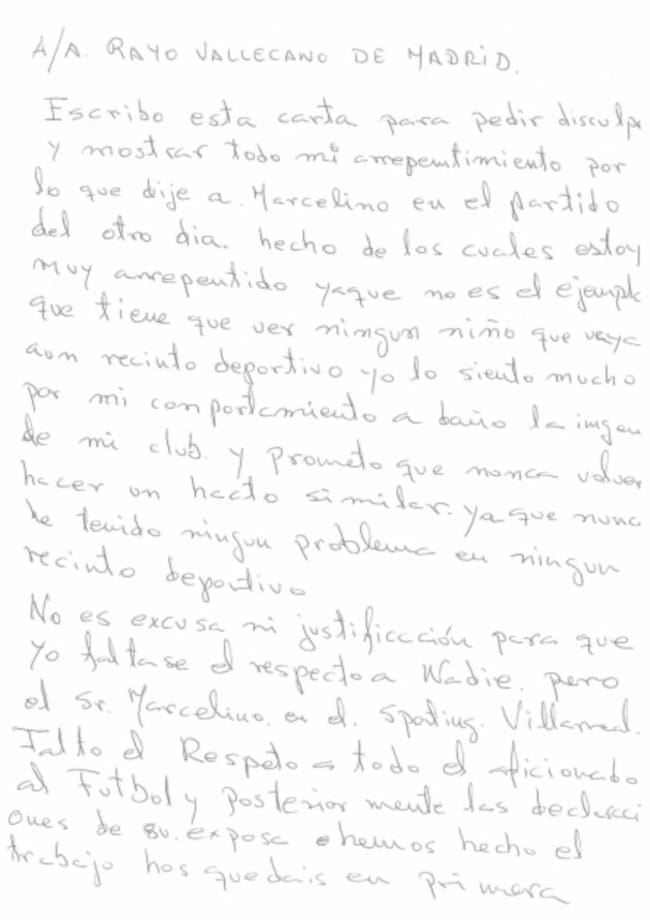 A/A. RAYO VALLECANO DE MADRID.
Escribo esta carta para pedir disculp
y mostrar todo mi arrepentimiento por
lo que dije a. Marcelino en el partido
del otro dia. hecho de los cuales estoy
muy arrepentido yaque no es el ejempl
que tiene que ver ningun niño que vaya
aun recinto deportivo yo lo siento mucho
por mi comportamiento a daño la imgen
de mi club. y prometo que nunca volver
hacer un hacto similar. ya que nunc
he tenido ningun problema en ningun
recinto deportivo
No es excusa ni justificacción para que
yo faltase el respecto a Nadie. pero
el Sr. Marcelino. en el. Spoting. Villarreal.
Falto el Respeto a todo el aficionado
al Futbol y posterior mente las declaraci
ones de su. exposa ehemos hecho el
trabajo hos quedais en primera